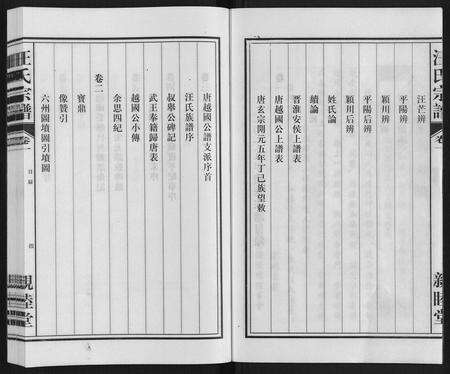 汪氏宗譜
卷一
汪芒辨
平陽辨
潁川辨
平陽后辨
潁川后辨
姓氏論
續論
晉淮安侯上譜表
唐越國公上譜表
唐玄宗開元五年丁己族望敕
親睦堂
唐越國公譜支派序首
汪氏族譜序
叔舉公碑記
武王奉籍歸唐表
越國公小傳
余思四紀
卷二
寶鼎
像贊引
六州圖墳圖引墳圖
汪氏宗譜
卷
目錄
四
親睦堂